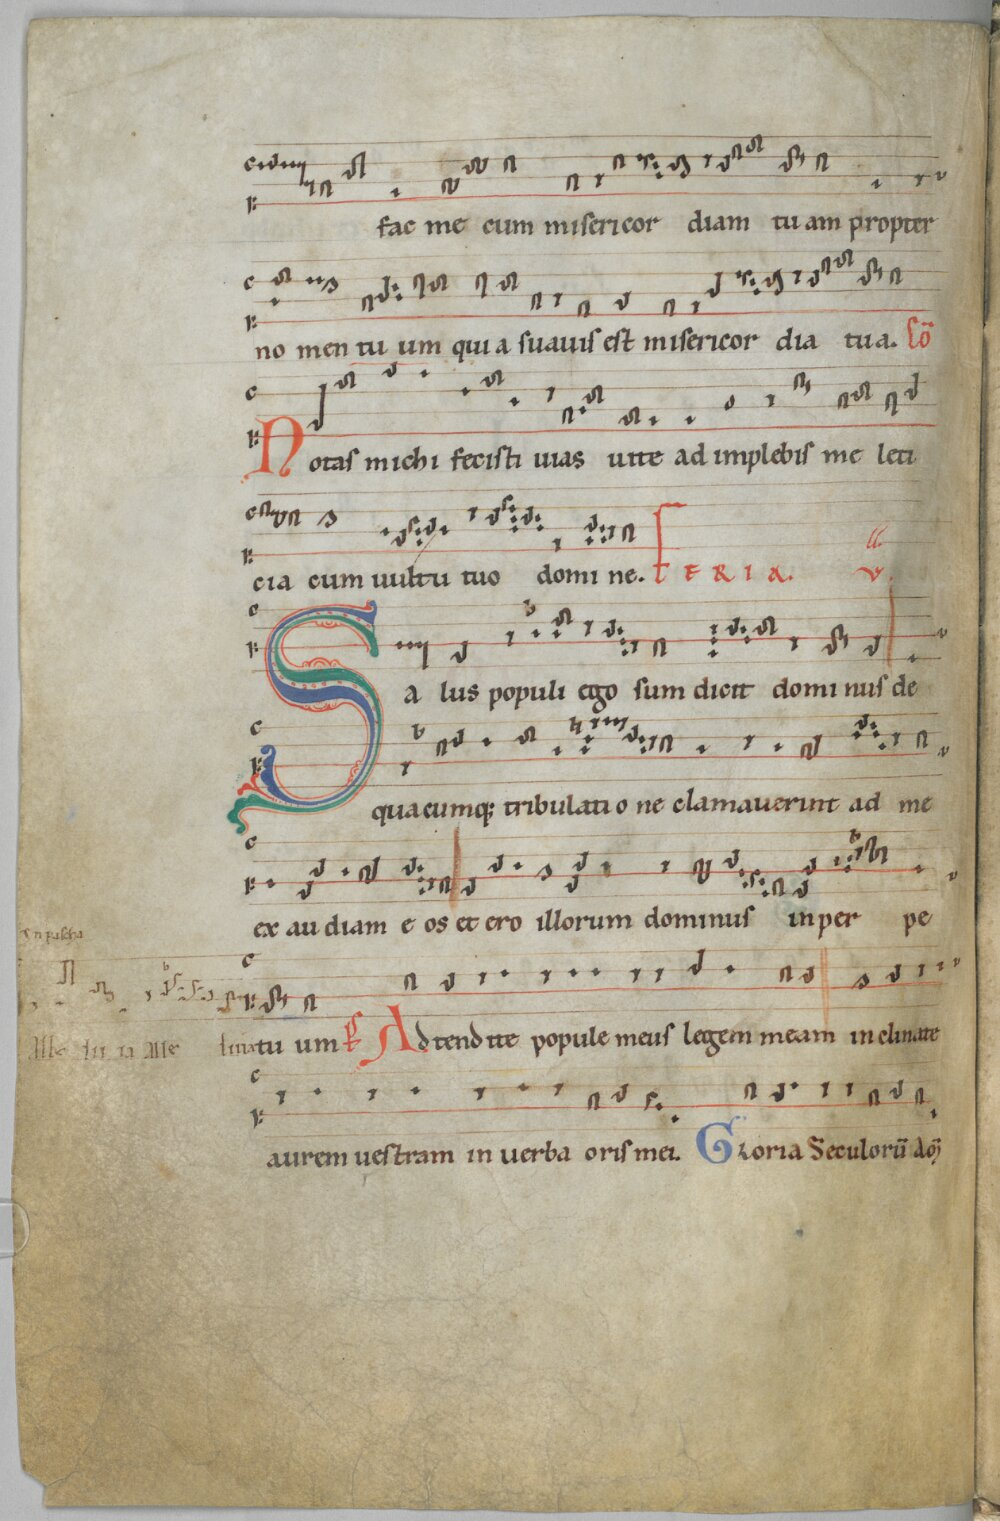 fac me cum misericor diam tuam propter
no men tu um quia suauis est misericor dia tua. Cō
Notas michi fecisti uias uite ad implebis me leti
cia cum uultu tuo domi ne. FERIA. V.
Sa lus populi ego sum dicit dominus de
quacumq; tribulatio ne clamauerint ad me
ex au diam e os et ero illorum dominus in per pe
In pascha
tu um Ps Adtendite popule meus legem meam inclinate
Alle lu ia Alle luia
aurem uestram in uerba oris mei. Gloria Seculorū